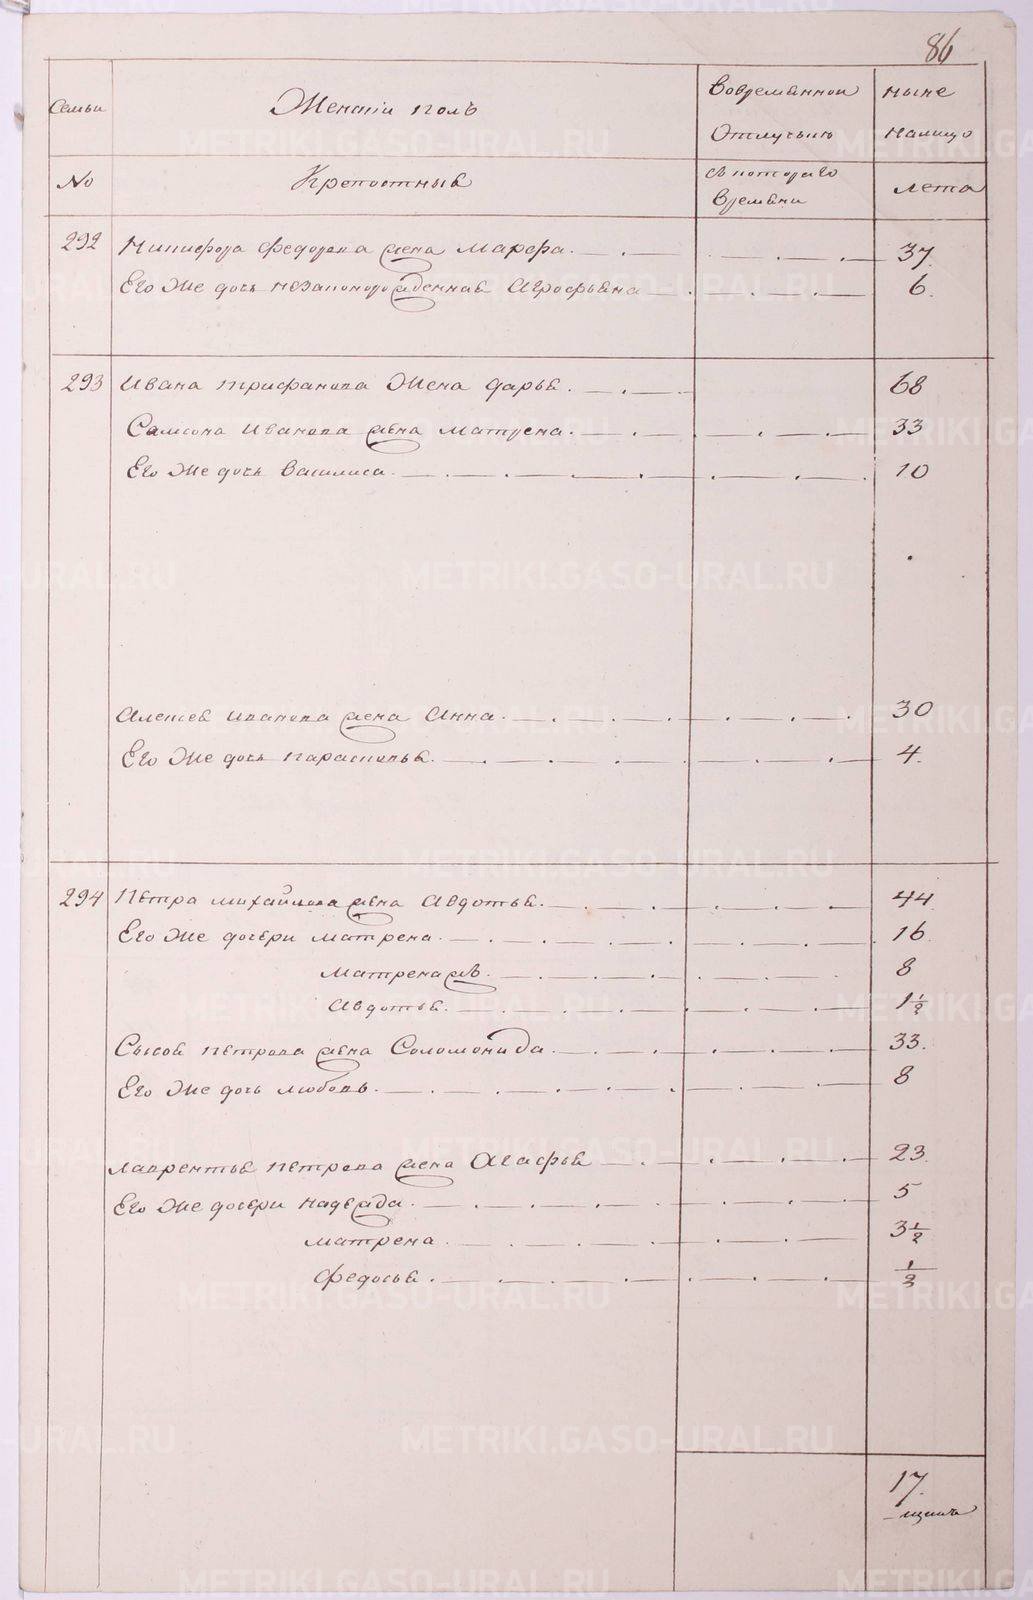 86
Семьи
Женскiй полъ
Вовременной
Отлучкѣ
ныне
налицо
No
Крепостныя
съ котораго
времени
лета
292 Никифора Федорова жена Марфа. 37.
Его же дочь незаконорожденная Агрофѣна 6.
293 Ивана Трифанова Жена дарья. 68
Самсона Иванова жена матрена. 33
Его же дочь Василиса. 10
Алексея Иванова жена Анна. 30
Его же дочь парасковья. 4.
294 Петра михайлова жена Авдотья. 44
Его же дочери матрена. 16
Матрена жъ. 8
Авдотья. 1½
Сысоя петрова жена Соломонида. 33.
Его же дочь любовь. 8
лаврентья петрова жена Агафья 23.
Его же дочери надежда. 5
матрена. 3½
федосья. ½
17.
METRIKI.GASO-URAL.RU